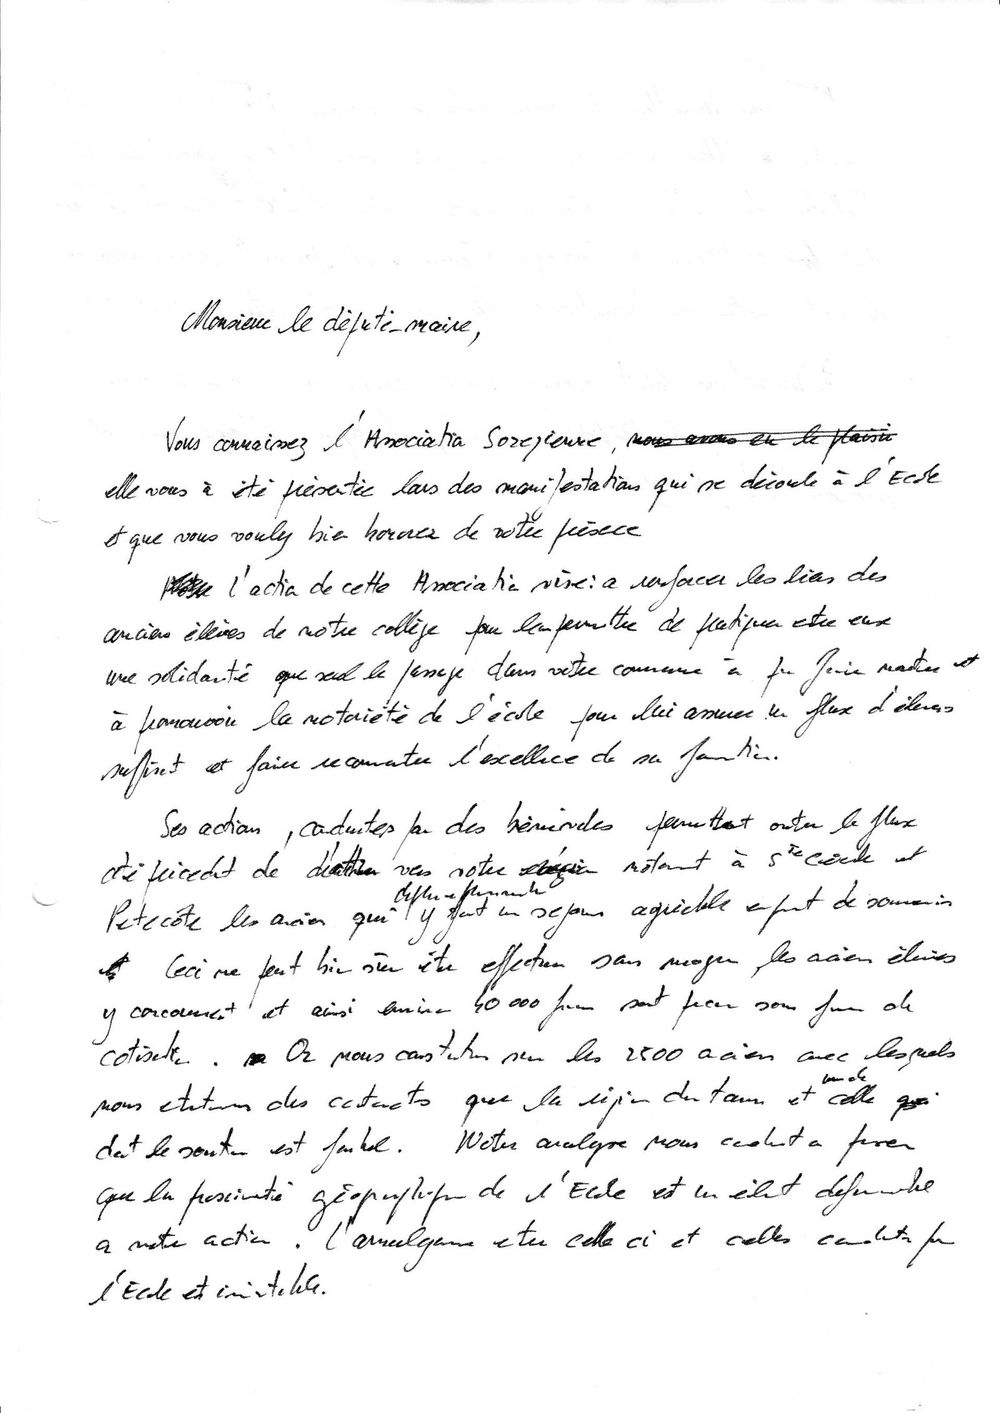 Monsieur le député-maire,
Vous connaissez l'Association Sorezienne, nous avons eu le plaisir
elle vous à été présentée lors des manifestations qui se déroule à l'Ecole
et que vous voulez bien honorer de votre présence
L'action de cette Association vise: a renforcer les liens des
anciens élèves de notre collège pour leur permettre de pratiquer entre eux
une solidarité que seul le passage dans votre commune à faire naitre et
à promouvoir la notoriété de l'école pour lui assurer un flux d'élèves
suffisant et faire reconnaitre l'excellence de sa formation.
Ses actions, conduites par des bénévoles permettent outre le flux
de vers votre notamment à
les anciens qui y font un sejour agréable
Ceci ne peut bien sûr être effectuer sans moyen, les anciens élèves
y concourent et ainsi environ 40 000 sont sous forme de
cotisation. Or nous constatons sur les 2500 anciens avec lesquels
nous entretenons des contacts que la région du tarn et celle
dont le soutien est faible. Notre analyse nous conduit a penser
que la proximité géographique de l'Ecole est un élément défavorable
a notre action. L'amalgame entre celle ci et celles conduites par
l'Ecole est inévitable.